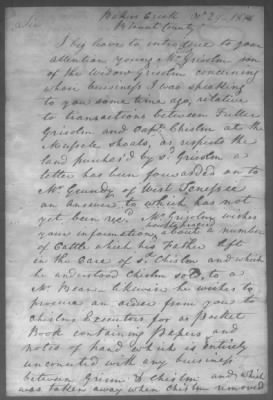 Bakers Creek Octr 29 1816
Blount County
Sir
I beg leave to introduce to your
attention young Mr Grissom son
of the Widow Grissom concerning
whose buisiness I was speaking
to you some time ago, relative
to transactions between Fuller
Grissom and Capt. Chislm at the
Muscle Shoals, as respects the
land purchas'd by sd. Grissom a
letter has been forwarded on to
Mr. Grundy of West Tenessee
an answer to which has not
yet been recd. Mr. Grissom wishes
your information about a number
of Cattle which his Father left
in the care of sd. Chislm and which
he understood Chislm sold to a
Mr. Bean likewise he wishes to
procure an order from you to
Chislms Executors for a Pocket
Book containing Papers and
notes of hand which is entirely
unconected with any buisiness
between Grissm & Chislm and which
was taken away when Chislm removed